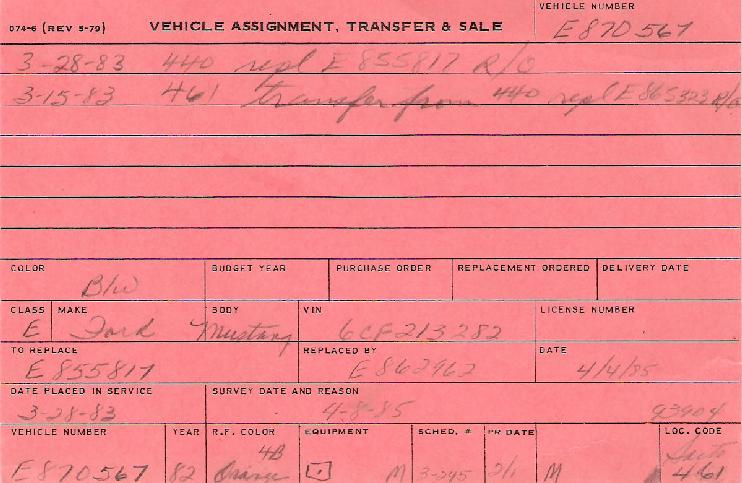 074-6 (REV 5-79) VEHICLE ASSIGNMENT, TRANSFER & SALE
VEHICLE NUMBER
E870567
3-28-83 440 repl E855817 R/O
3-15-83 461 transfer from 440 repl E865323 R/O
COLOR BUDGET YEAR PURCHASE ORDER REPLACEMENT ORDERED DELIVERY DATE
B/W
CLASS MAKE BODY VIN LICENSE NUMBER
E Ford Mustang 6CF213282
TO REPLACE REPLACED BY DATE
E855817 E862962 4/4/85
DATE PLACED IN SERVICE SURVEY DATE AND REASON
3-28-83 4-8-85 93904
VEHICLE NUMBER YEAR R.F. COLOR EQUIPMENT SCHED. # PR DATE LOC. CODE
4B
E870567 82 Orange M 3-245 2/1 M 461